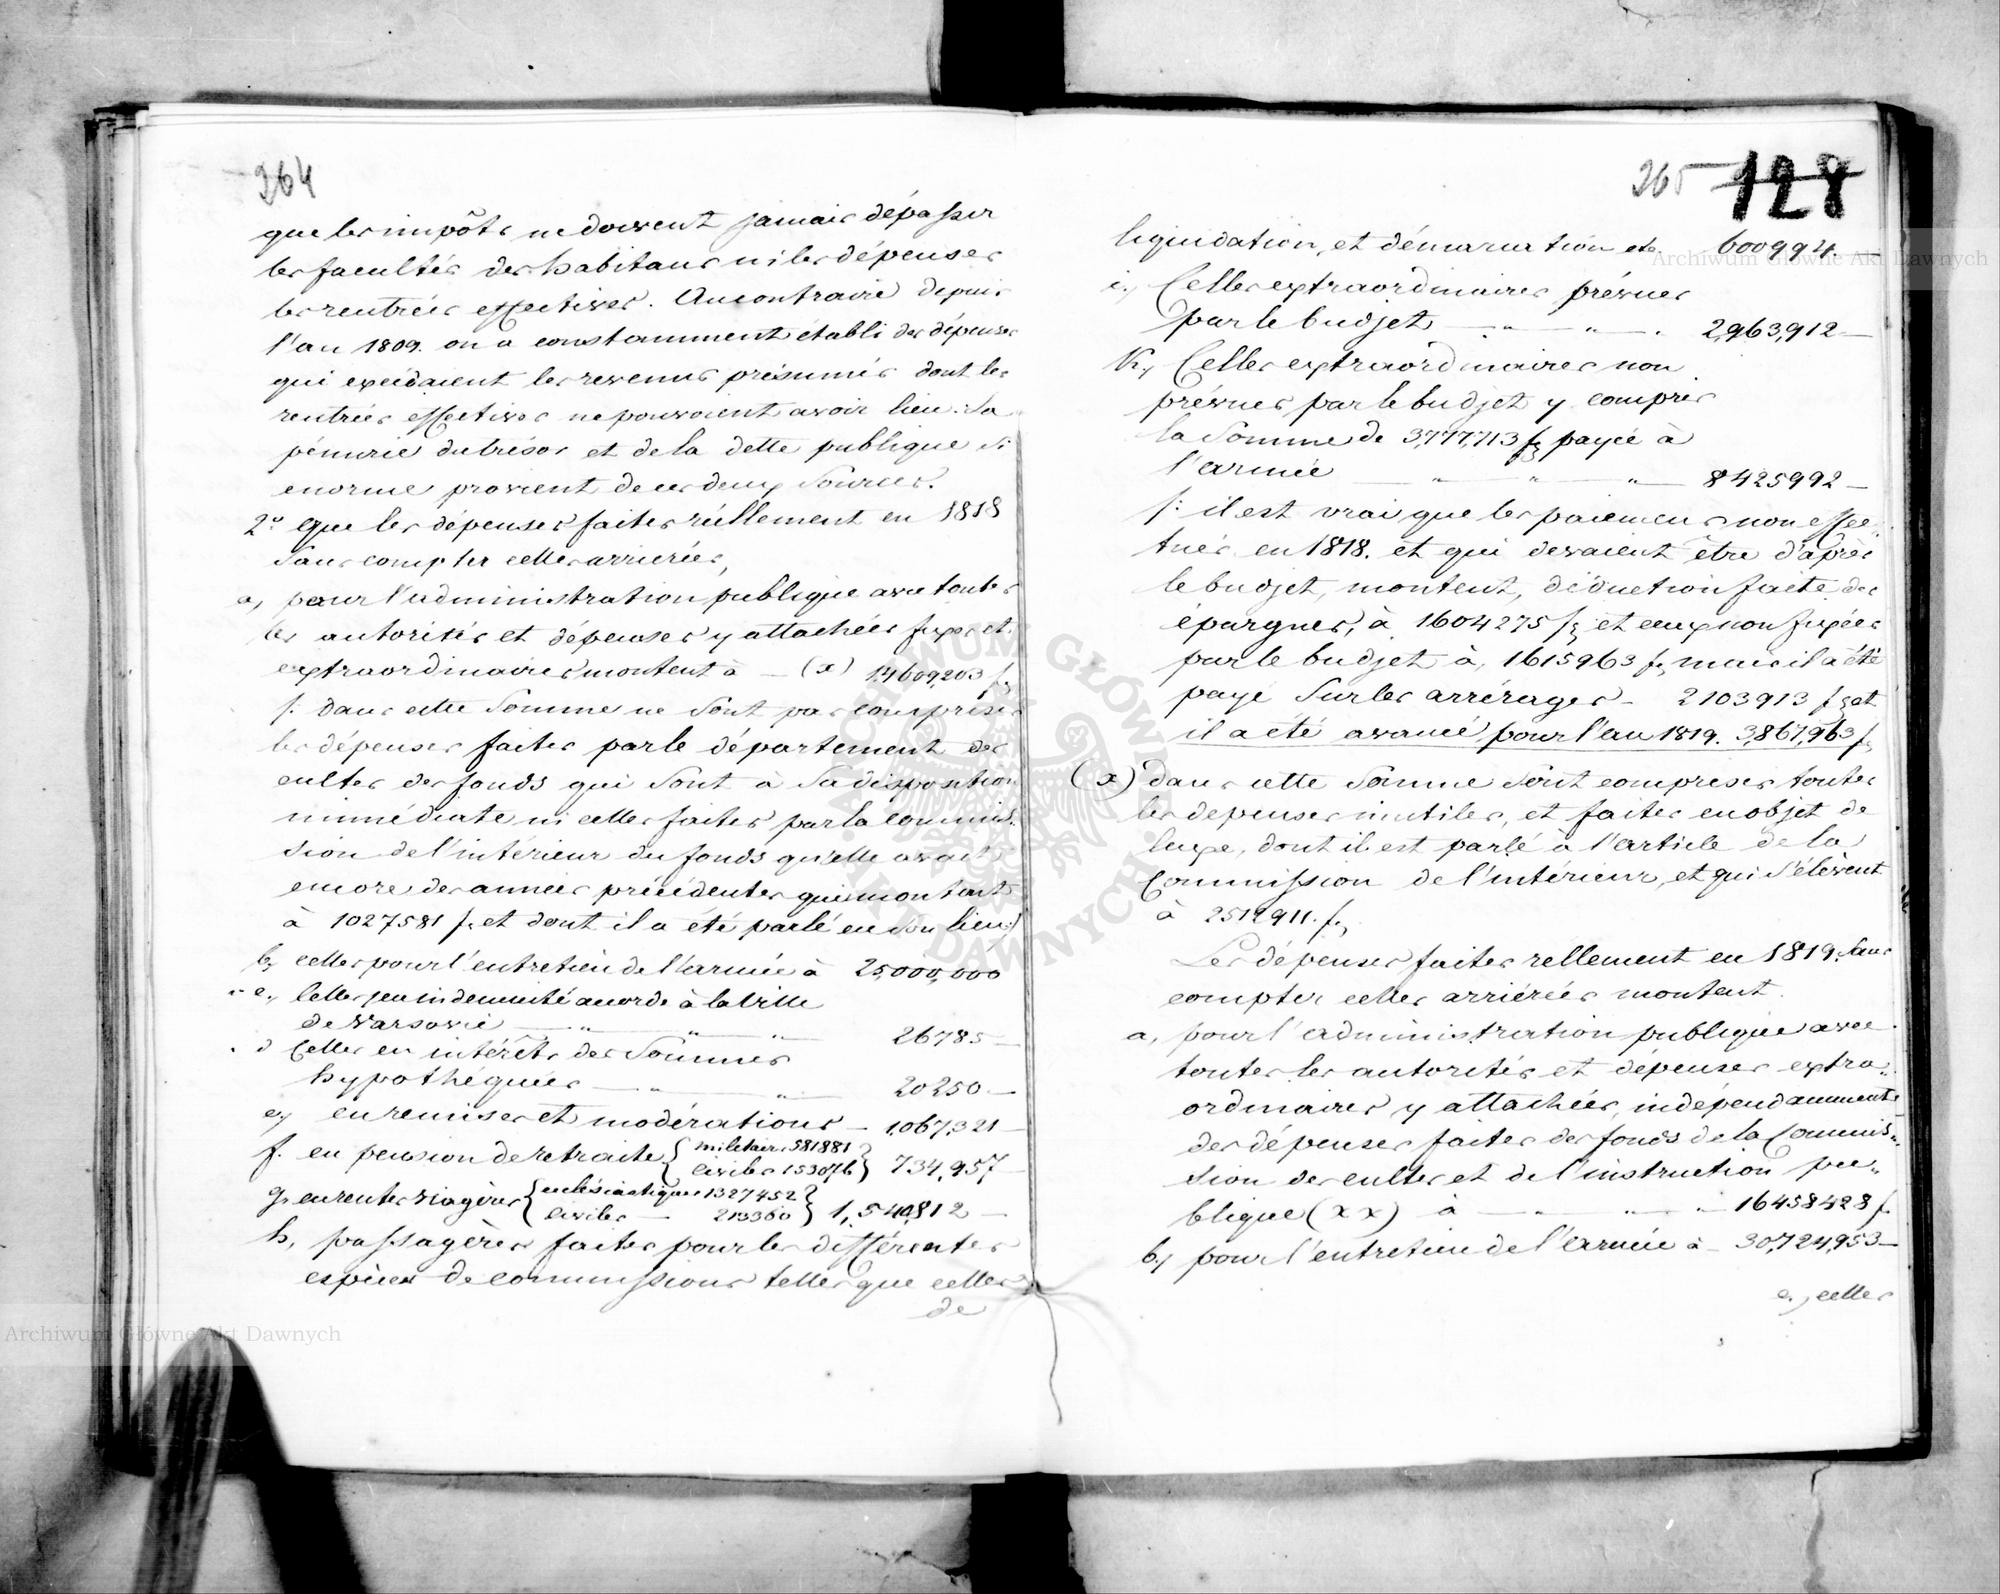 264
que les impôts ne doivent jamais dépasser
les facultés des habitans ni les dépenses
les rentrées effectives. Au contraire depuis
l'an 1809. on a constamment établi des dépenses
qui excédaient les revenus présumés dont les
rentrées effectives ne pouvoient avoir lieu. La
pénurie du trésor et de la dette publique si
enorme provient de ces deux sources.
2º que les dépenses faites réellement en 1818
sans compter celles arrierées,
a, pour l'administration publique avec toutes
les autorités et dépenses y attachées fixes et
extraordinaires montent à — (x) 14609,203 f
/: dans cette somme ne sont pas comprises
les dépenses faites par le département des
cultes des fonds qui sont à sa disposition
immédiate ni celles faites par la commis:
sion de l'intérieur du fonds qu'elle avait
encore des années précédentes qui montait
à 1027581 f. et dont il a été parlé en son lieu:/
b, celles pour l'entretien de l'armée à 25,000,000
c., celles en indemnité accordé à la ville
de Varsovie — " — " — " — 26785 —
d celles en intérêts des sommes
hypothéquées — " — " — 20250 —
e, en remises et modérations — 1,067,321 —
f. en pension de retraite { militaires 581881 / civiles 153076 } 734,957 —
g, en rentes viagères { ecclésiastiques 1327452 / civiles — 213360 } 1,540,812 —
h, passagères faites pour les différentes
espèces de commissions telles que celles
de
265 128
liquidation, et démarcation etc. 600994.
i., Celles extraordinaires prévues
par le budjet — " — " — . 2,963,912 —
K, Celles extraordinaires non
prévues par le budjet y compris
la somme de 3,777,713 f payée à
l'armée — " — " — " — 8425992 —
/: il est vrai que les paiemens non effec:
tués en 1818. et qui devaient être d'après
le budjet, montent, déduction faite des
épargnes, à 1604275 f et ceux non fixées
par le budjet à, 1615963 f, mais il a été
payé sur les arrérages — 2103913 f et
il a été avancé pour l'an 1819. 3,867,963 f
(x) dans cette somme sont comprises toutes
les depenses inutiles, et faites en objet de
luxe, dont il est parlé à l'article de la
Commission de l'intérieur, et qui s'élèvent
à 2512911. f.
Les dépenses faites rellement en 1819. sans
compter celles arriérées montent.
a, pour l'administration publique avec
toutes les autorités et dépenses extra:
ordinaires y attachées, indépendamment
des dépenses faites des fonds de la Commis:
sion des cultes et de l'instruction pu:
blique (xx) à — " — " — 16458428 f
b, pour l'entretien de l'armée à — 30,724,953 —
c., celles
Archiwum Główne Akt Dawnych
Archiwum Główne Akt Dawnych
ARCHIWUM GŁÓWNE AKT DAWNYCH